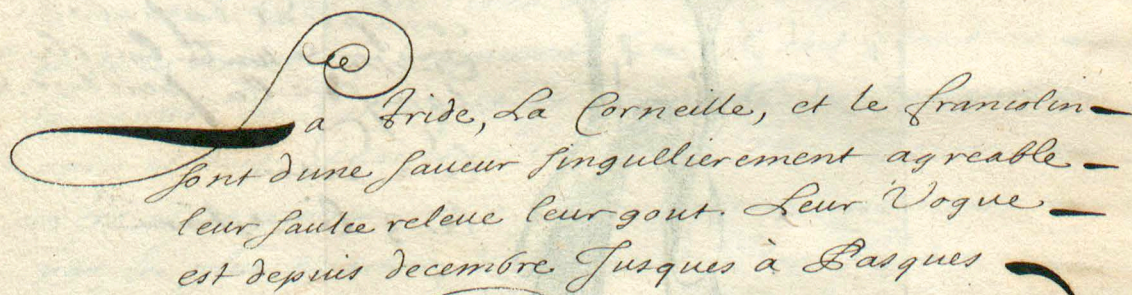 La Tride, La Corneille, et le francolin
sont dune saueur singullierement agreable
leur saulce releue leur gout. Leur Vogue
est depuis decembre Jusques à Pasques